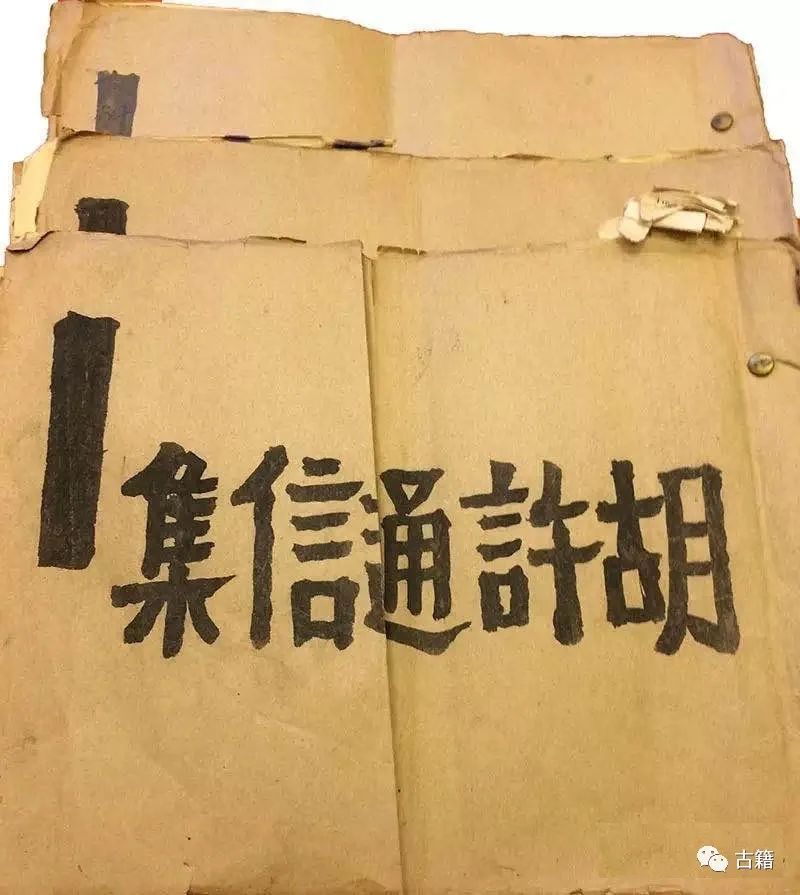 胡許通信集
古籍